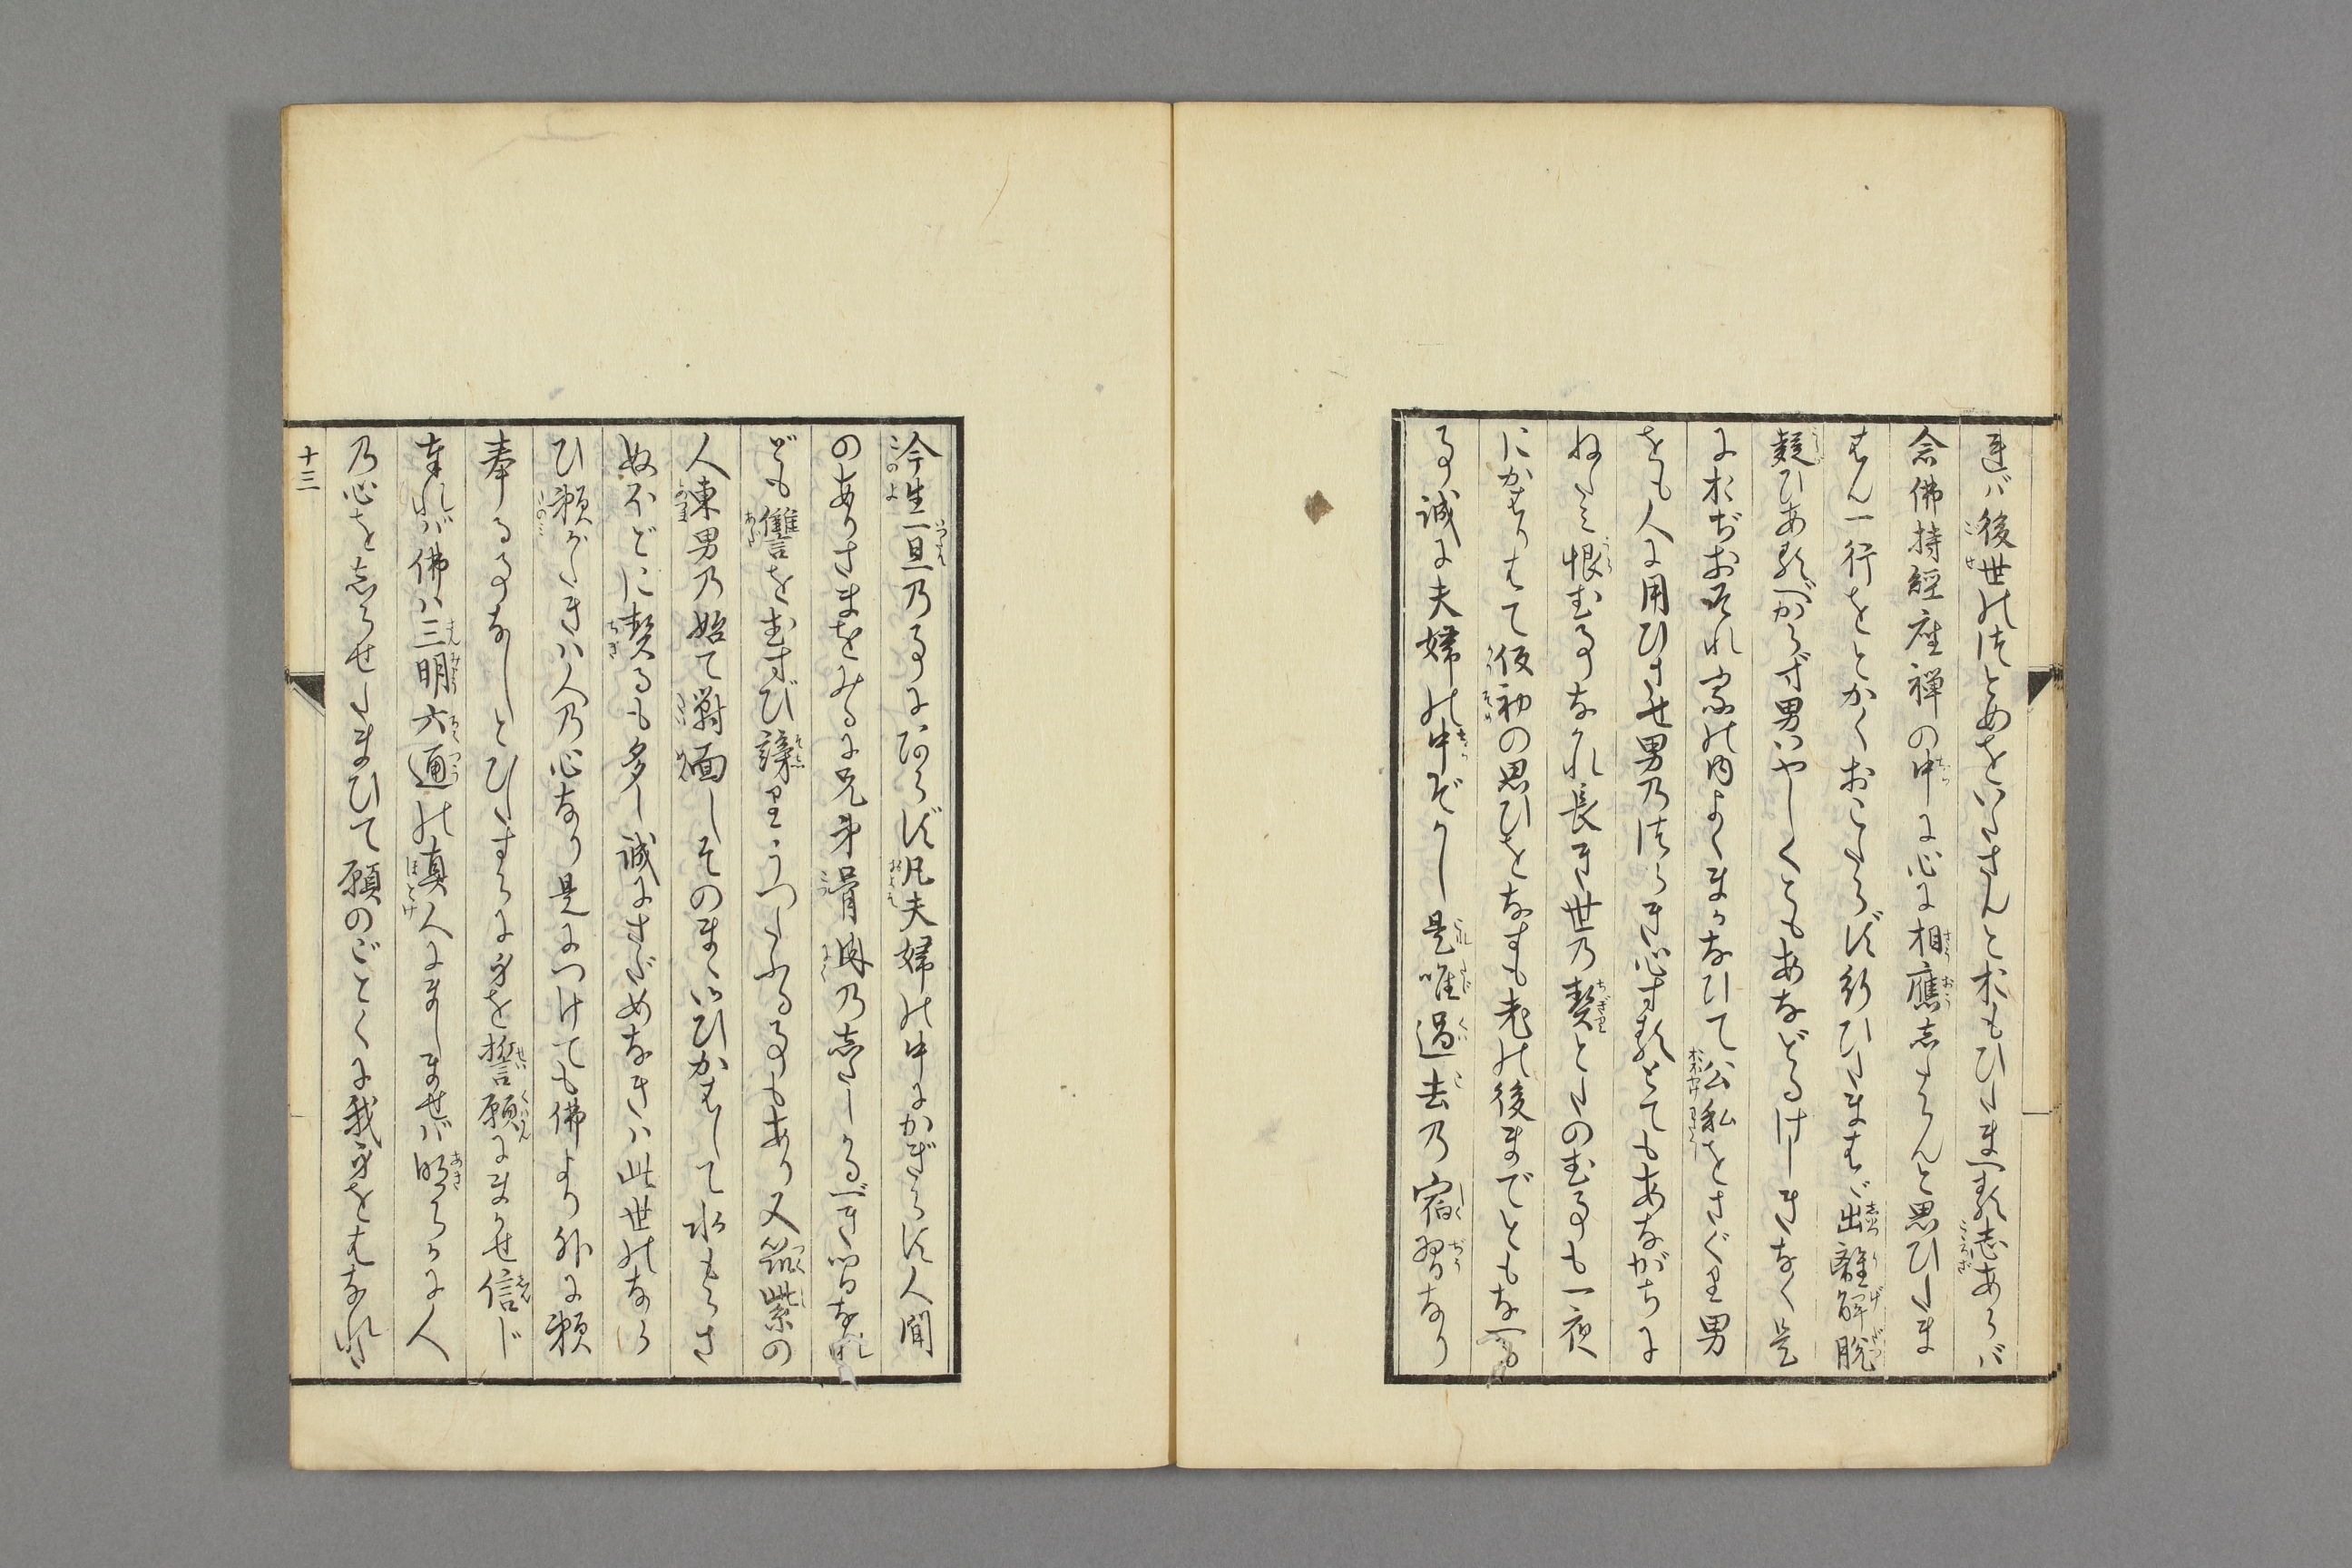 連バ後世のつとめをいたさんとおもひたまへる志あらバ
念佛持經座禅の中に心に相應志たらんと思ひたま
はん一行をとかくおこたらず行ひたまはゞ出離解脱
疑ひあるべからず男いやしくともあなどるけしきなく是
におぢおそれ家の内よくまかなひて公私をさぐり男
をも人に用ひさせ男乃つらき心するとてもあながちに
ねたミ恨むる事なかれ長き世乃契とたのむる事も一夜
にかはりはて仮初の思ひをなすも老の後までともなへ
る事誠に夫婦の中ぞかし是唯過去乃宿習なり
今生一旦乃事にあらず凡夫婦の中にかぎらず人間
のありさまをみるに兄弟骨肉乃志たしかるべき間な
ども讐をむすび謗りうつたふる事もあり又筑紫の
人東男乃始て対面しそのまゝいひかはして水もらさ
ぬほどに契るも多し誠にさだめなきハ此世のならひ
頼がたきハ人乃心なり是につけても佛より外に頼
奉る事なしとひたすらに身を誓願にまかせ信じ
奉れバ佛ハ三明六通の真人にましませバ明らかに人
乃心を志らせたまひて願のごとくに我身をはなれ
十三